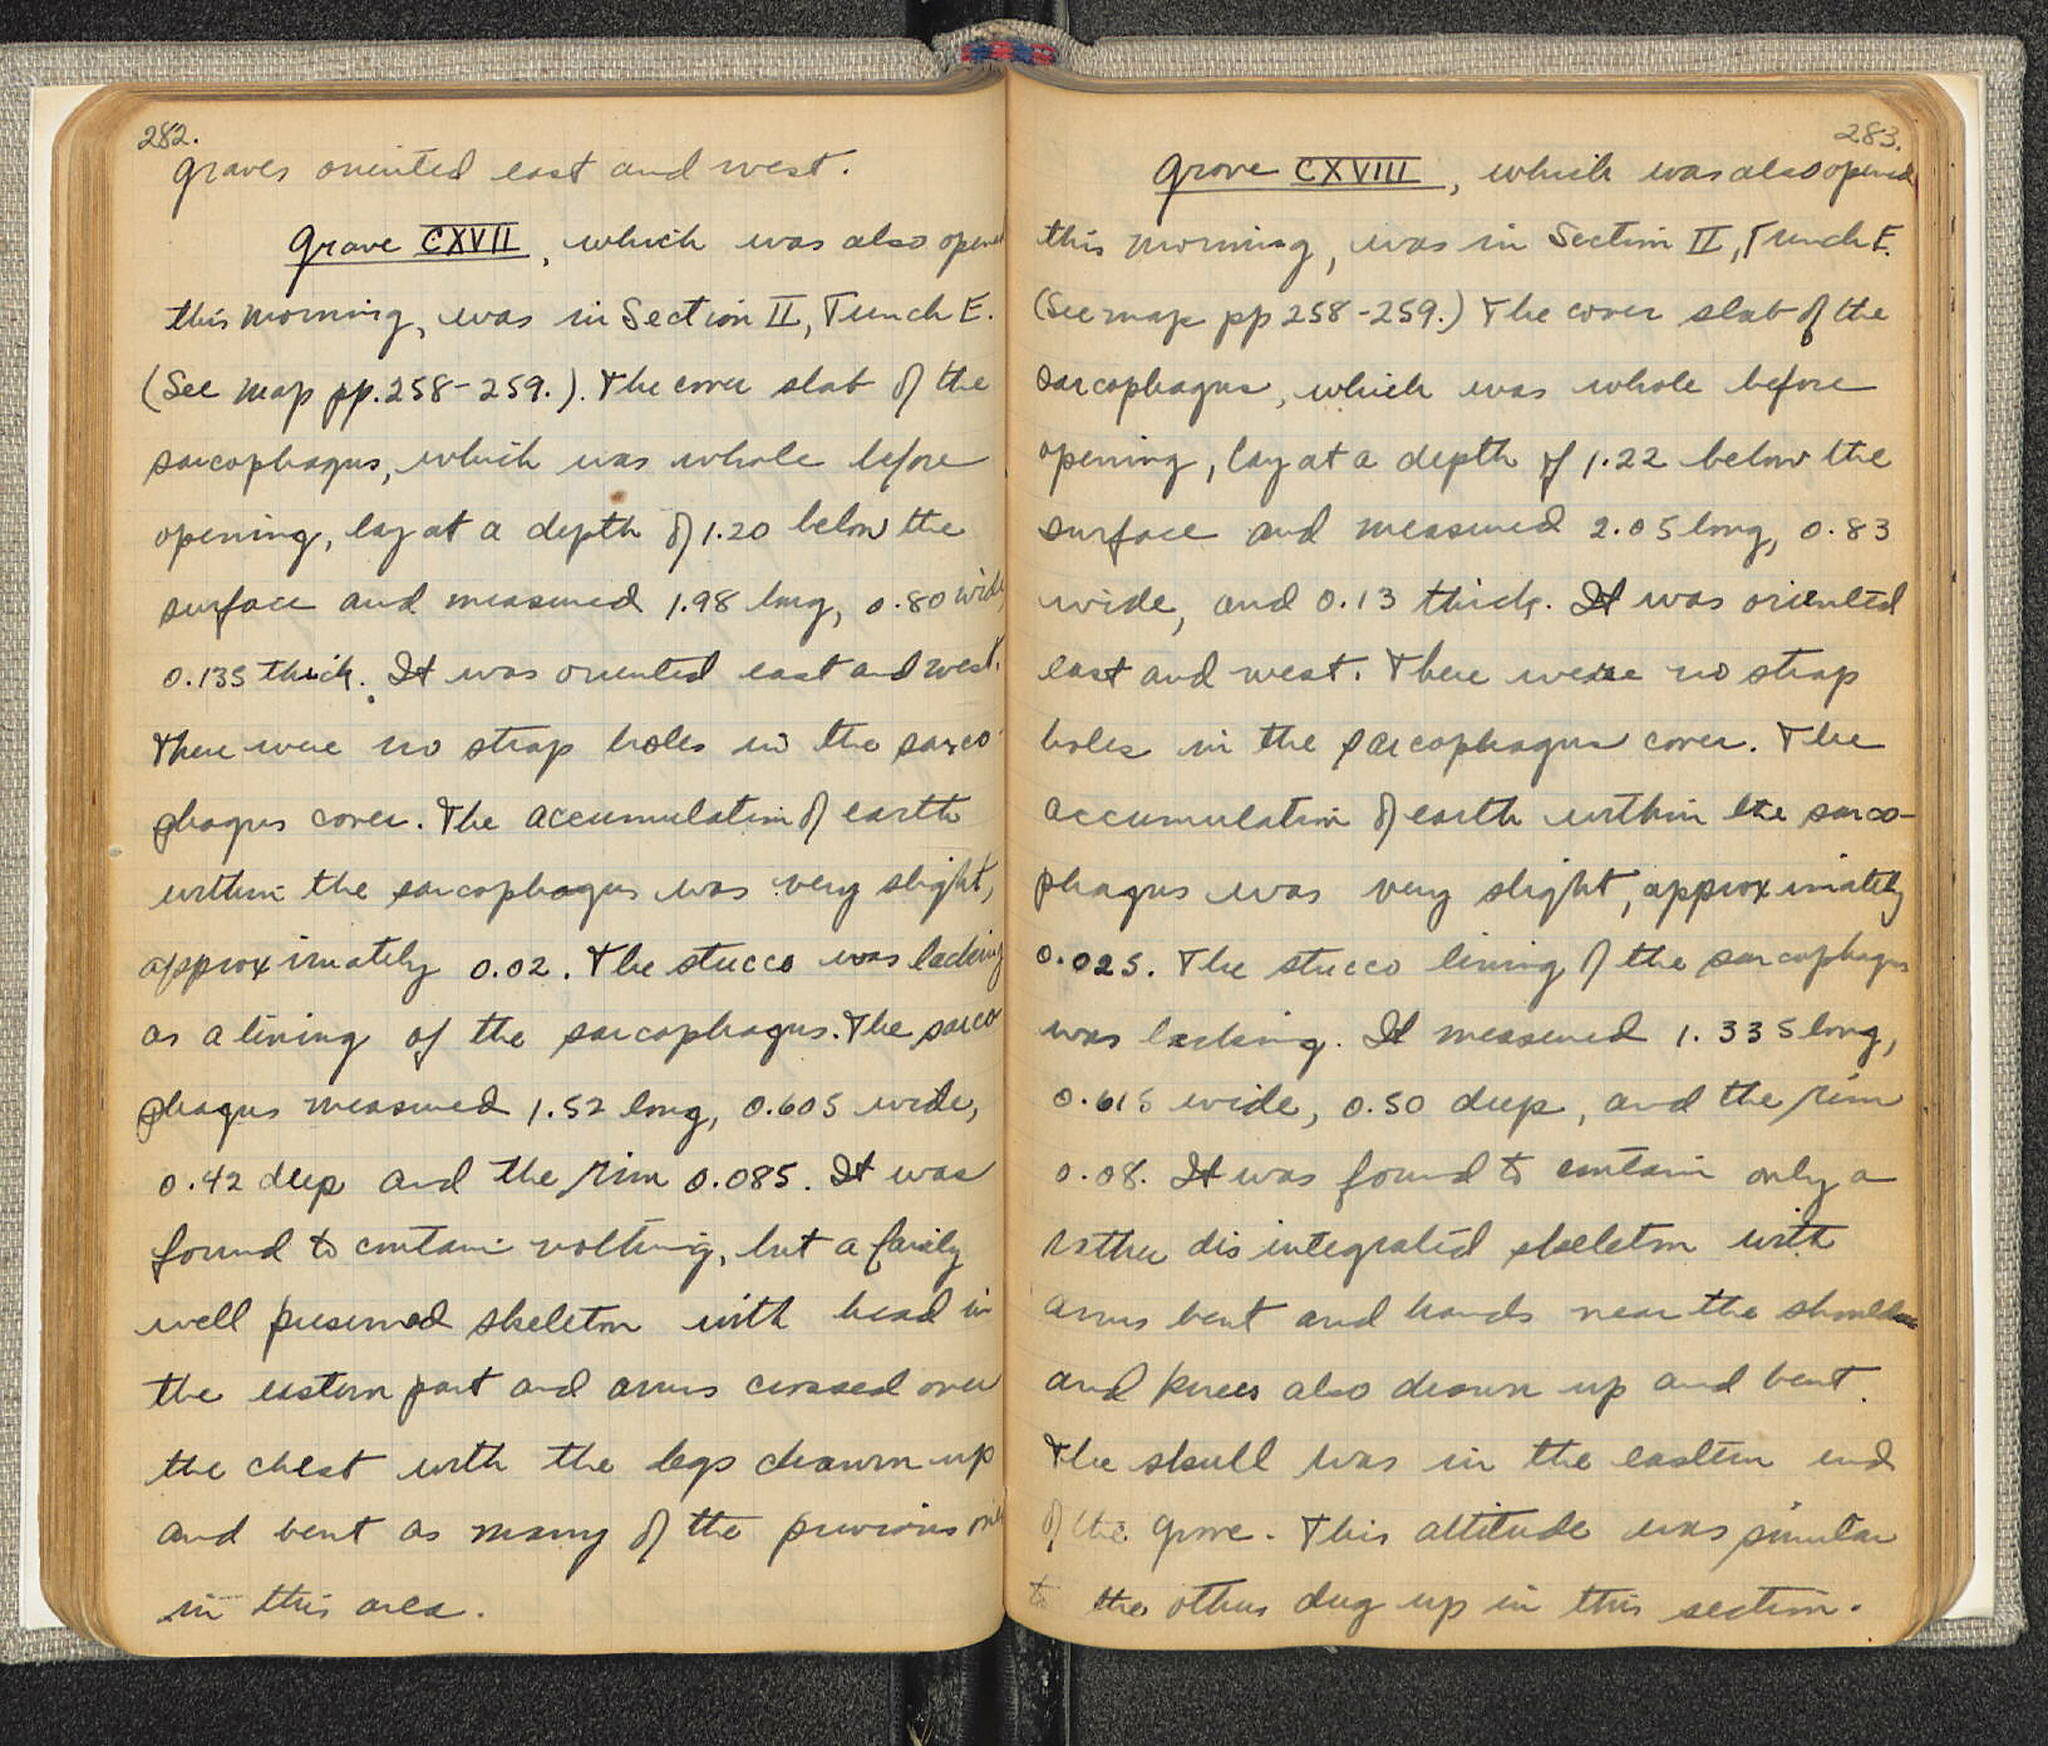 282.
graves oriented east and west.
Grave CXVII, which was also opened
this morning, was in Section II, Trench E.
(See map pp. 258-259.). The cover slab of the
sarcophagus, which was whole before
opening, lay at a depth of 1.20 below the
surface and measured 1.98 long, 0.80 wide,
0.135 thick. It was oriented east and west.
There were no strap holes in the sarco-
phagus cover. The accumulation of earth
within the sarcophagus was very slight,
approximately 0.02. The stucco was lacking
as a lining of the sarcophagus. The sarco
phagus measured 1.52 long, 0.605 wide,
0.42 deep and the rim 0.085. It was
found to contain nothing, but a fairly
well preserved skeleton with head in
the eastern part and arms crossed over
the chest with the legs drawn up
and bent as many of the previous ones
in this area.
283.
Grave CXVIII, which was also opened
this morning, was in Section II, Trench E.
(See map pp 258-259.) The cover slab of the
sarcophagus, which was whole before
opening, lay at a depth of 1.22 below the
surface and measured 2.05 long, 0.83
wide, and 0.13 thick. It was oriented
east and west. There were no strap
holes in the sarcophagus cover. The
accumulation of earth within the sarco-
phagus was very slight, approximately
0.025. The stucco lining of the sarcophagus
was lacking. It measured 1.335 long,
0.615 wide, 0.50 deep, and the rim
0.08. It was found to contain only a
rather disintegrated skeleton with
arms bent and hands near the shoulders
and knees also drawn up and bent.
The skull was in the eastern end
of the grave. This attitude was similar
to the others dug up in this section.